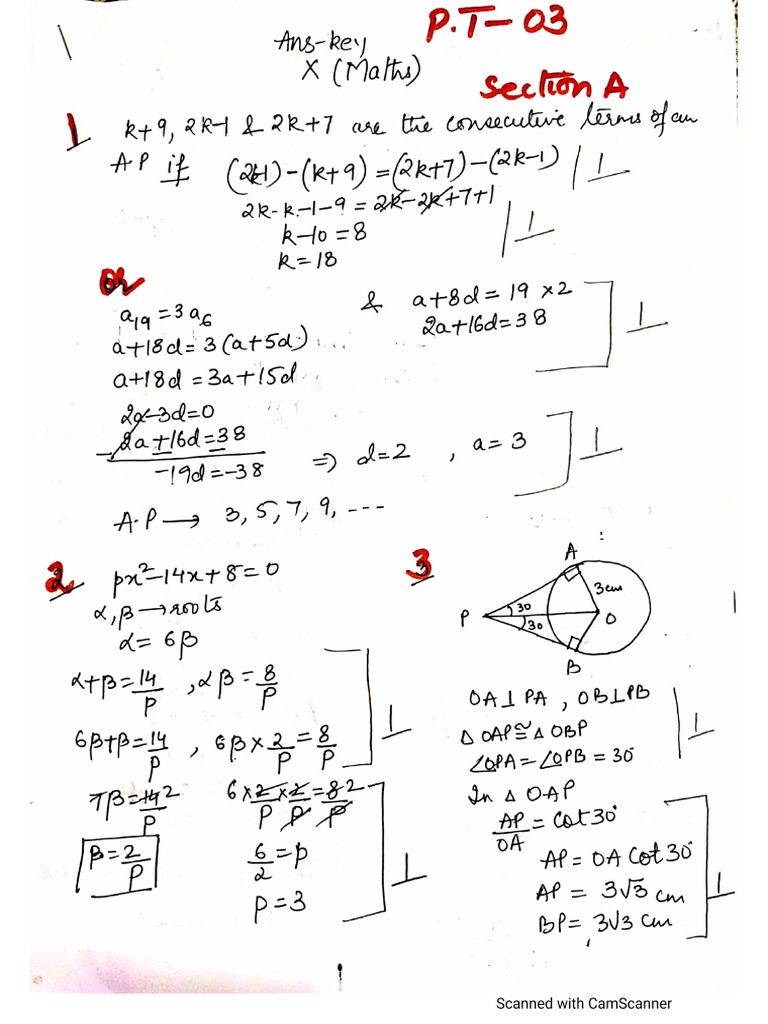 P.T-03
Ans-key
X (Maths)
Section A
1 k+9, 2k-1 & 2k+7 are the consecutive terms of an
AP if (2k-1)-(k+9)=(2k+7)-(2k-1) | 1
2k-k-1-9 = 2k-2k+7+1
k-10=8 | 1
k=18
or
a₁₉=3a₆ & a+8d=19 ×2
a+18d=3(a+5d) 2a+16d=38 1
a+18d=3a+15d
2a-3d=0
2a+16d=38
-19d=-38 ⇒ d=2, a=3 1
A.P → 3, 5, 7, 9, ---
2 px²-14x+8=0
α, β → roots
α = 6β
α+β=14/p, αβ=8/p
6β+β=14/p, 6β×2/p=8/p 1
7β=14 2/p 6×2/p×2/p=8 2/p
β=2/p 6/2=p 1
p=3
3
A
3cm
P 30 O
30
B
OA⊥PA, OB⊥PB
△OAP≅△OBP 1
∠OPA=∠OPB=30°
In △OAP
AP/OA=cot30°
AP=OA cot30°
AP=3√3 cm 1
BP=3√3 cm
Scanned with CamScanner